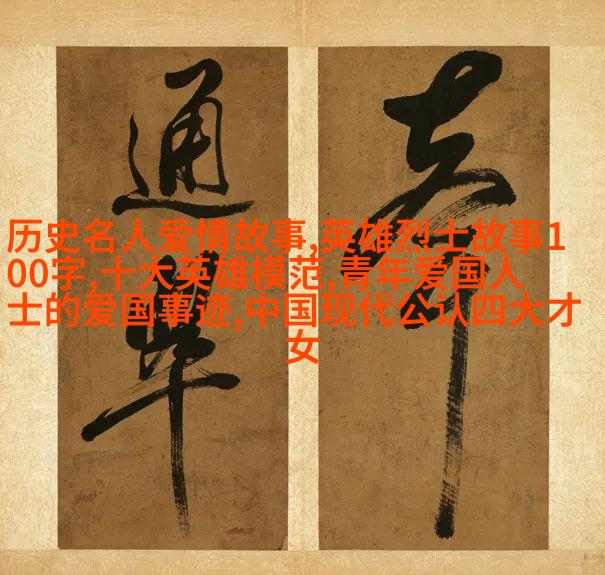 通
历史名人爱情故事,英雄烈士故事1
00字,十大英雄模范,青年爱国人
士的爱国事迹,中国现代公认四大才
女